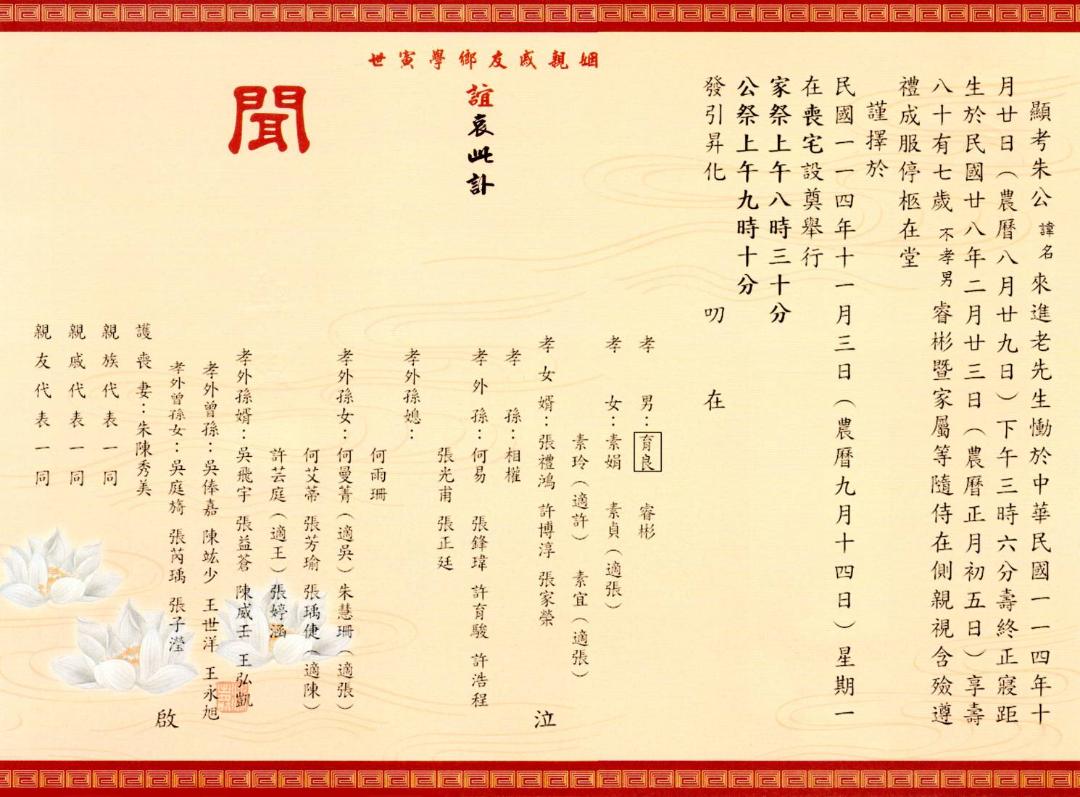 顯考朱公諱名來進老先生慟於中華民國一一四年十
月廿日（農曆八月廿九日）下午三時六分壽終正寢距
生於民國廿八年二月廿三日（農曆正月初五日）享壽
八十有七歲不孝男睿彬暨家屬等隨侍在側親視含殮遵
禮成服停柩在堂
謹擇於
民國一一四年十一月三日（農曆九月十四日）星期一
在喪宅設奠舉行
家祭上午八時三十分
公祭上午九時十分
發引昇化 叨在
姻親戚友鄉學寅世
誼哀此訃
聞
孝男：育良 睿彬
孝女：素娟 素貞（適張）
素玲（適許） 素宜（適張）
孝女婿：張禮鴻 許博淳 張家榮
泣
孝孫：相權
孝外孫：何易 張鋒瑋 許育駿 許浩程
張光甫 張正廷
孝外孫媳：
何雨珊
孝外孫女：何曼菁（適吳）朱慧珊（適張）
何艾蒂 張芳瑜 張瑀倢（適陳）
許芸庭（適王）張婷涵
孝外孫婿：吳飛宇 張益蒼 陳威壬 王弘凱
孝外曾孫：吳俸嘉 陳竑少 王世洋 王永旭
孝外曾孫女：吳庭旖 張芮瑀 張子瀅
啟
護喪妻：朱陳秀美
親族代表一同
親戚代表一同
親友代表一同